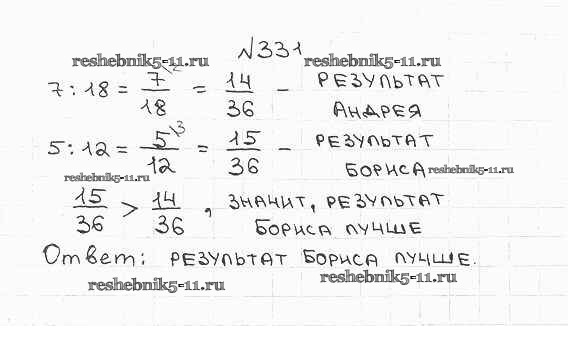 №331
reshebnik5-11.ru reshebnik5-11.ru
7 : 18 = 7\2/18 = 14/36 – РЕЗУЛЬТАТ
АНДРЕЯ
5 : 12 = 5\3/12 = 15/36 – РЕЗУЛЬТАТ
БОРИСА reshebnik5-11.ru
reshebnik5-11.ru
15/36 > 14/36, ЗНАЧИТ, РЕЗУЛЬТАТ
БОРИСА ЛУЧШЕ
Ответ: РЕЗУЛЬТАТ БОРИСА ЛУЧШЕ.
reshebnik5-11.ru reshebnik5-11.ru